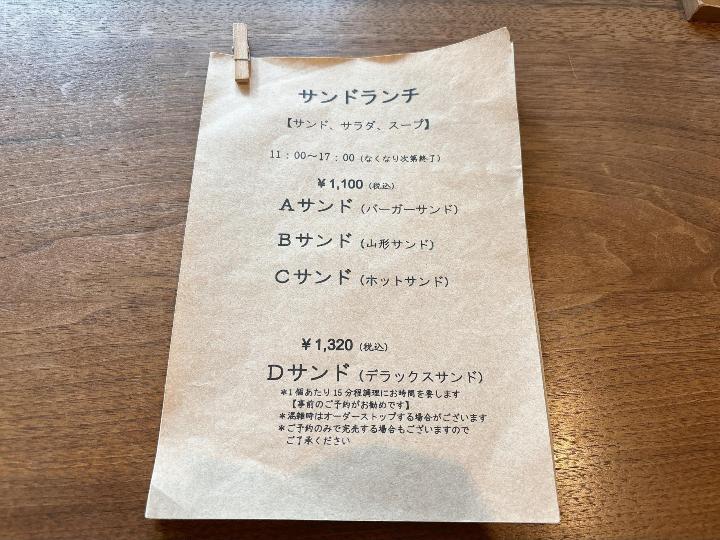 サンドランチ
【サンド、サラダ、スープ】
11：00～17：00（なくなり次第終了）
￥1,100（税込）
Aサンド（バーガーサンド）
Bサンド（山形サンド）
Cサンド（ホットサンド）
￥1,320（税込）
Dサンド（デラックスサンド）
＊1個あたり15分程調理にお時間を要します
【事前のご予約がお勧めです】
＊混雑時はオーダーストップする場合がございます
＊ご予約のみで完売する場合もございますので
ご了承ください